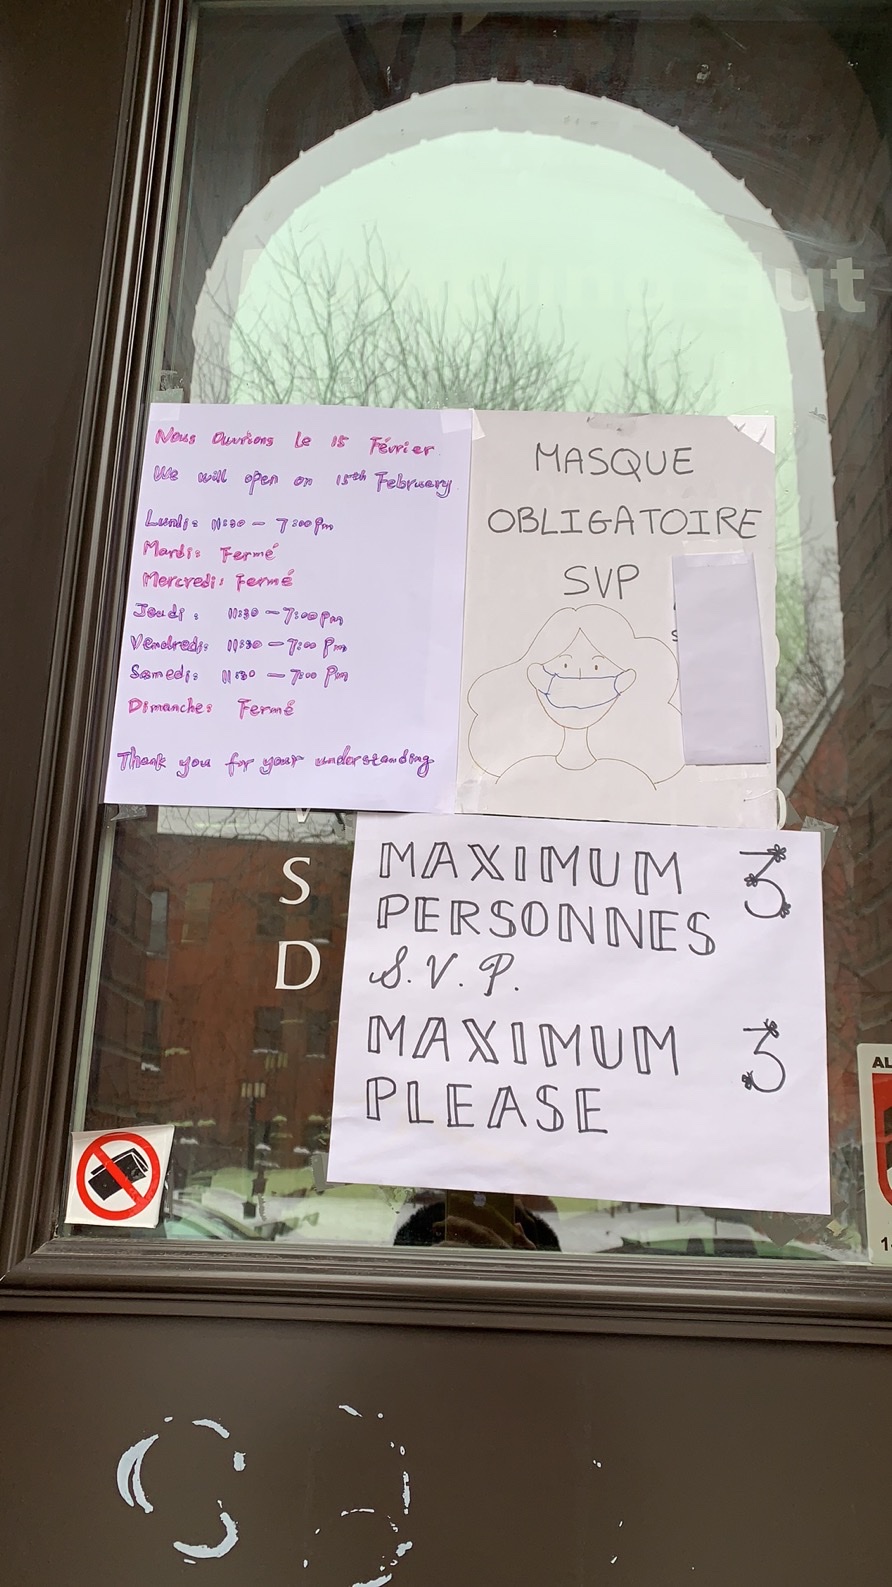 ut
Nous Ouvrions Le 15 Février
We will open on 15th February
Lundi: 11:30 - 7:00 pm
Mardi: Fermé
Mercredi: Fermé
Jeudi: 11:30 - 7:00 pm
Vendredi: 11:30 - 7:00 pm
Samedi: 11:30 - 7:00 pm
Dimanche: Fermé
Thank you for your understanding
MASQUE
OBLIGATOIRE
SVP
S
D
MAXIMUM 3
PERSONNES
S.V.P.
MAXIMUM 3
PLEASE
AL